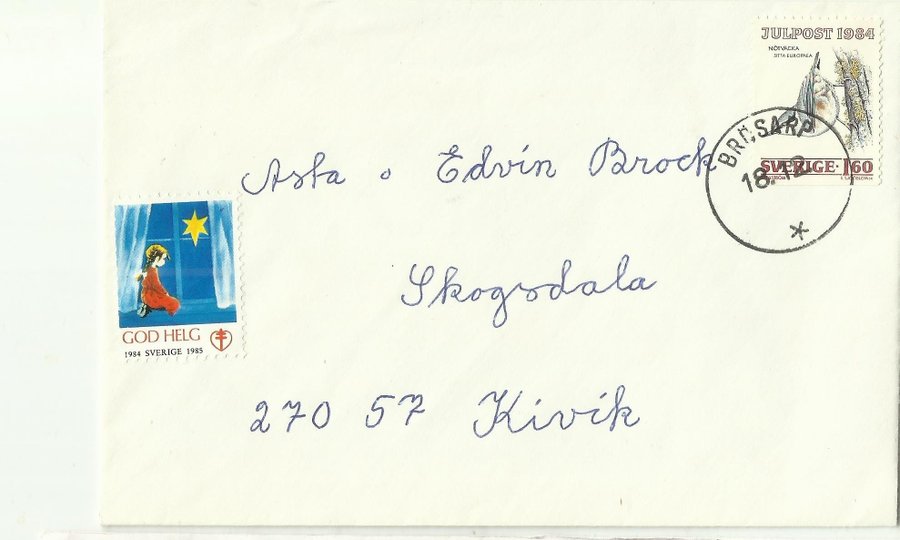 JULPOST 1984
NÖTVÄCKA
SITTA EUROPAEA
SVERIGE 1.60
BRÖSARP
18.12.
Asta o Edvin Brock
Skogsdala
270 57 Kivik
GOD HELG
1984 SVERIGE 1985